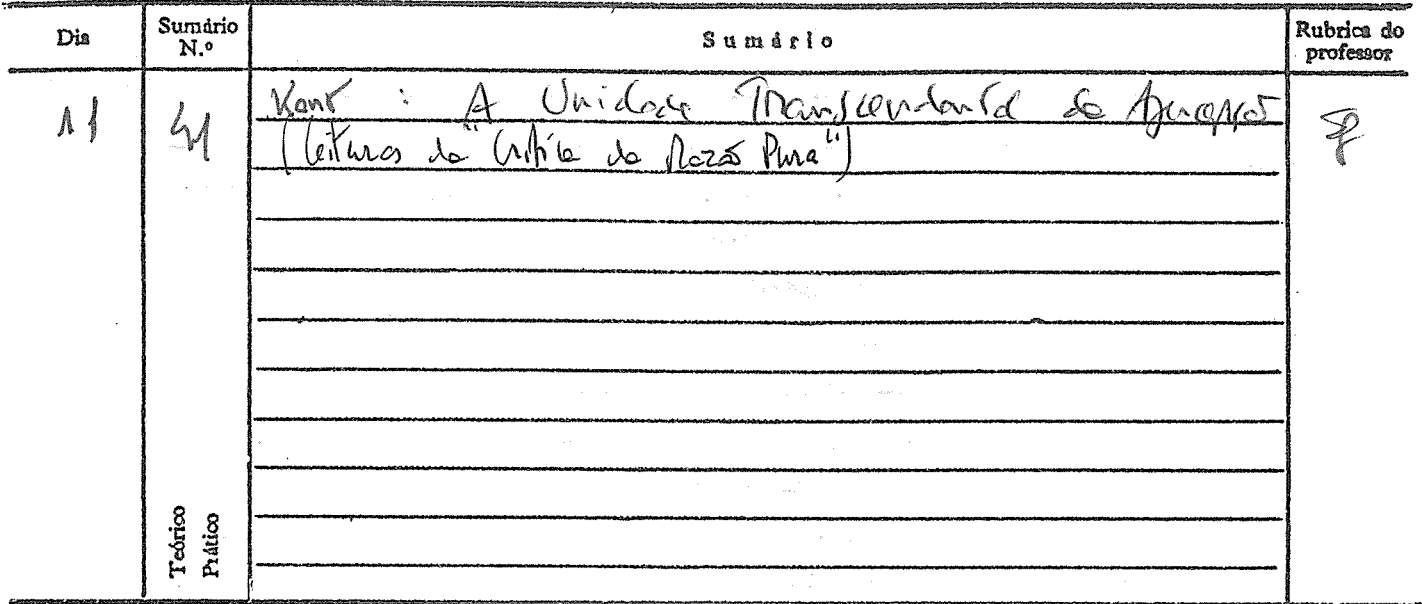 Dia Sumário N.º Sumário Rubrica do professor
11 41 Kant : A Unidade Transcendental da Apercepção
(Leituras da "Crítica da Razão Pura")
Teórico
Prático